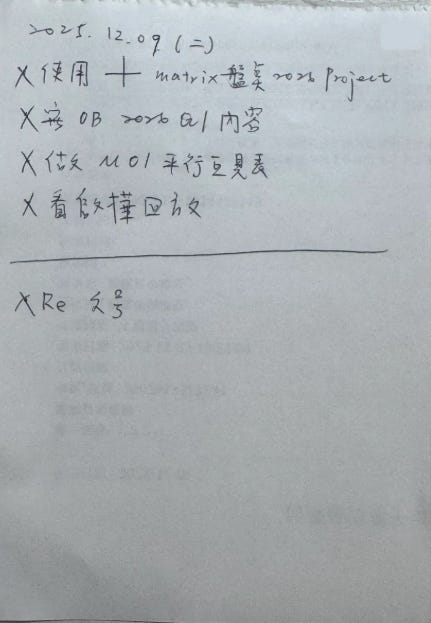 2025. 12.09 (二)
X 使用 十 matrix 盤點 2026 Project
X 寫 OB 2026 Q1 內容
X 做 M01 平行互見表
X 看 回
X Re